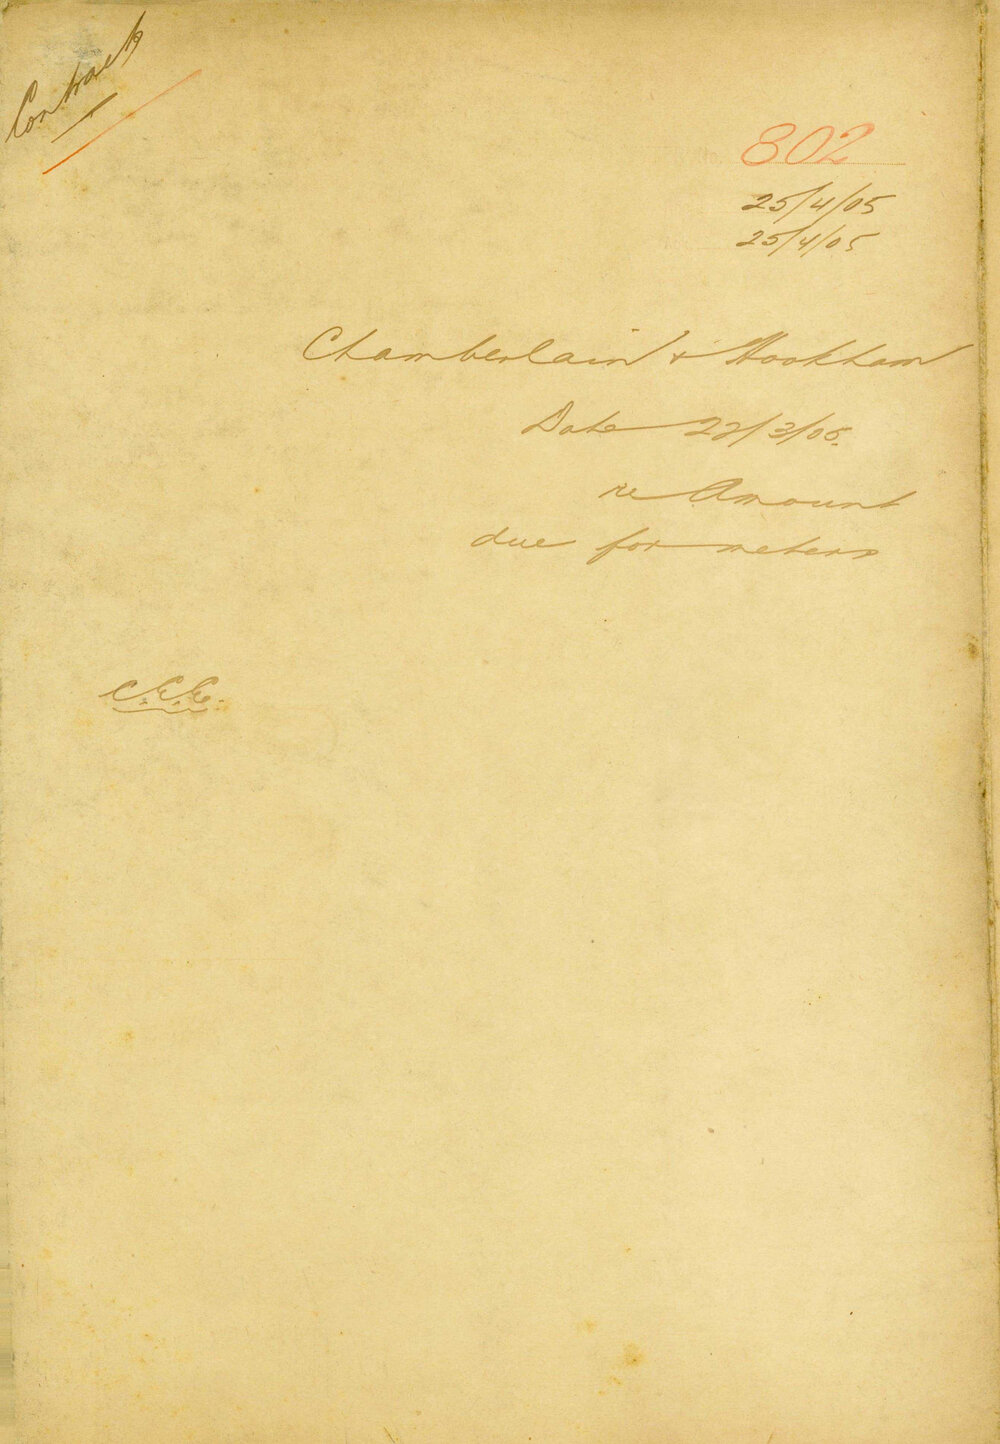 Contract
802
25/4/05
25/4/05
Chamberlain & Hookham
Date 22/3/05.
re Amount
due for meters